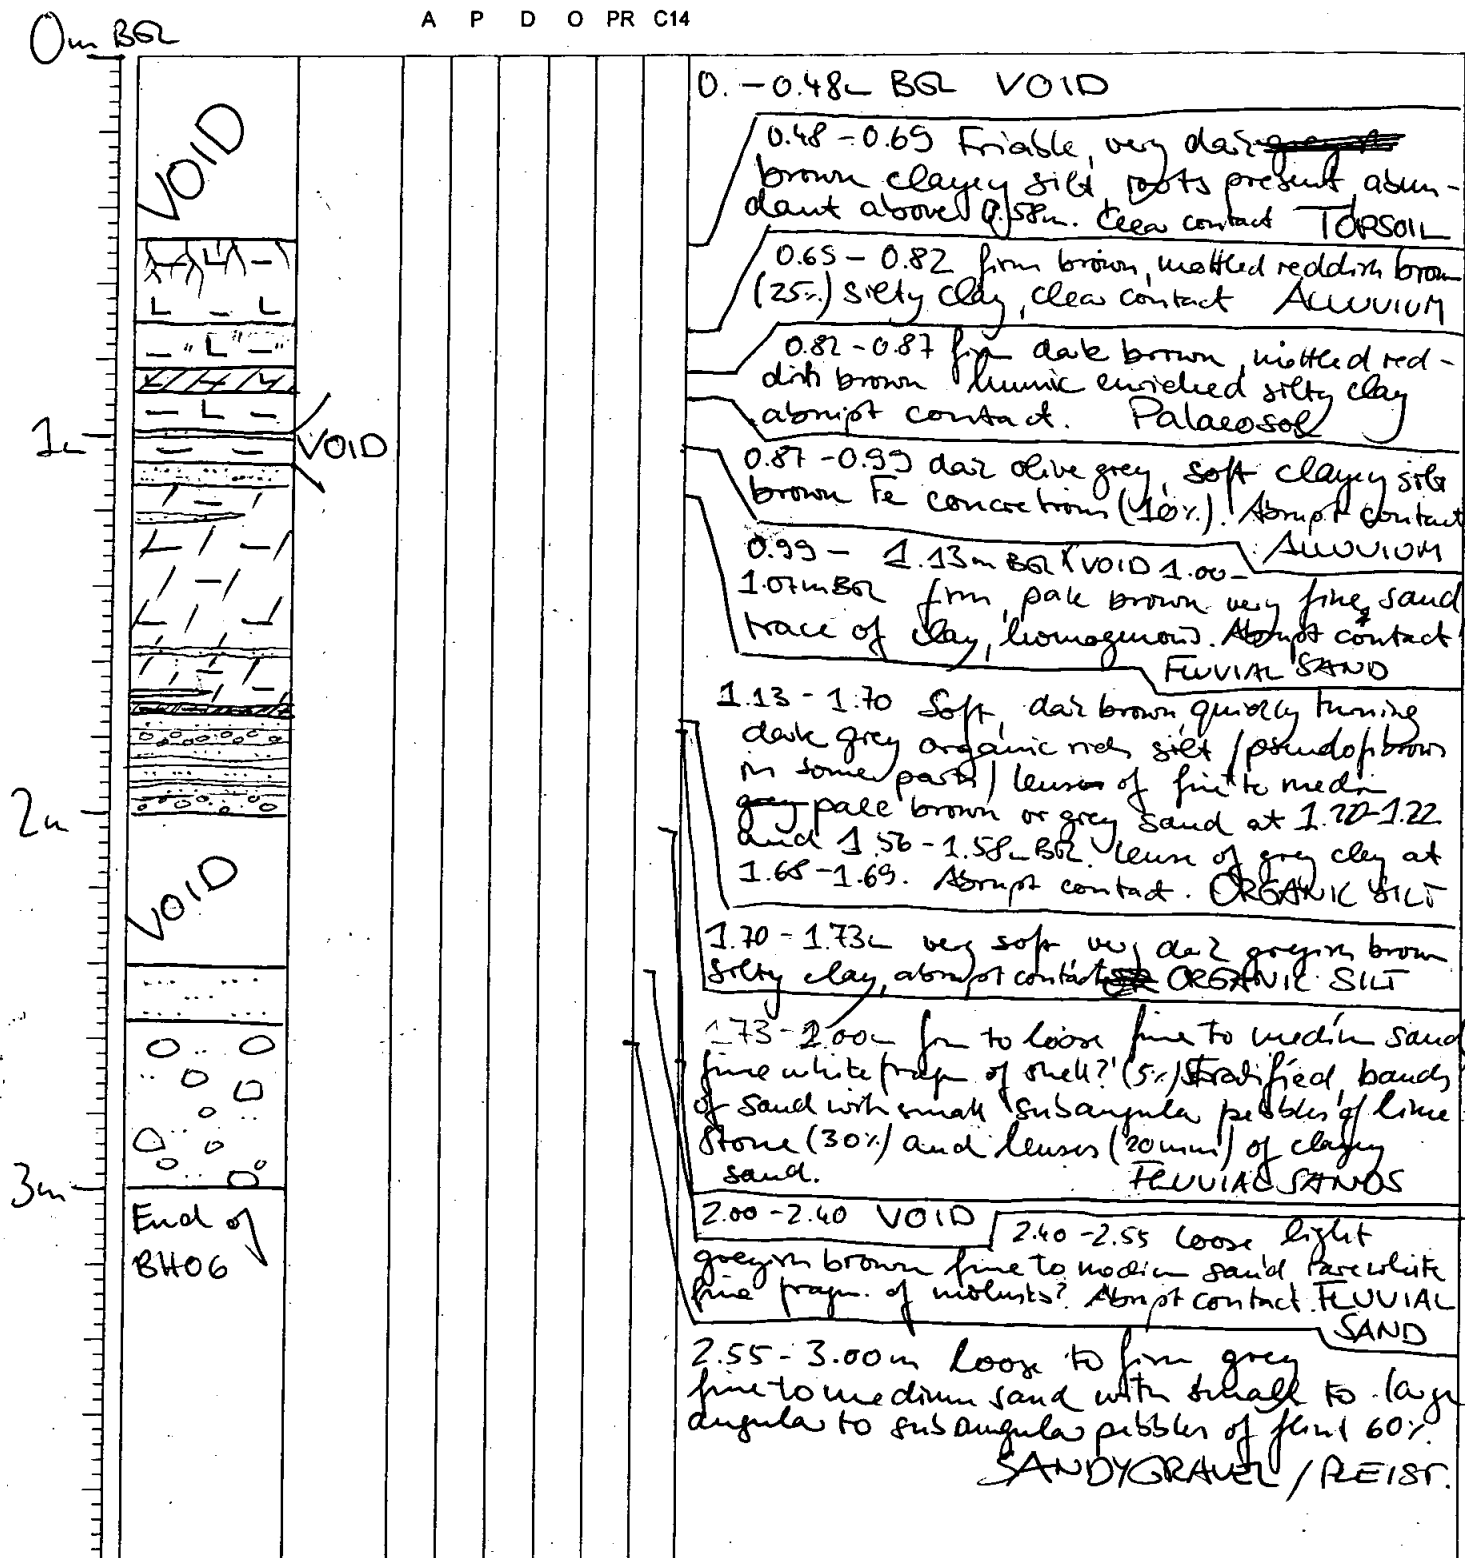 A P D O PR C14
0m BGL
VOID
1m
VOID
2m
VOID
3m
End of
BH06
0. - 0.48m BGL VOID
0.48 - 0.69 Friable, very dark
brown clayey silt, roots present, abun-
dant above 0.58m. Clear contact TOPSOIL
0.65 - 0.82 firm brown, mottled reddish brown
(25%) silty clay, clear contact ALLUVIUM
0.82 - 0.87 firm dark brown, mottled red-
dish brown humic enriched silty clay
abrupt contact. Palaeosol
0.87 - 0.99 dark olive grey, soft clayey silt
brown Fe concretions (10%). Abrupt contact
ALLUVIUM
0.99 - 1.13m BGL VOID 1.00-
1.07m BGL firm, pale brown very fine sand
trace of clay, homogenous. Abrupt contact
FLUVIAL SAND
1.13 - 1.70 Soft, dark brown, quickly turning
dark grey organic rich silt / pseudofibrous
in some parts / lenses of fine to medium
pale brown or grey sand at 1.22-1.22
and 1.56 - 1.58m BGL. Lense of grey clay at
1.68 - 1.69. Abrupt contact. ORGANIC SILT
1.70 - 1.73m very soft very dark greyish brown
silty clay, abrupt contact ORGANIC SILT
1.73 - 2.00m firm to loose fine to medium sand
fine white fragm of shell? (5%) Stratified, bands
of sand with small subangular pebbles of lime
stone (30%) and lenses (20mm) of clayey
sand. FLUVIAL SANDS
2.00 - 2.40 VOID
2.40 - 2.55 loose light
greyish brown fine to medium sand rare white
fine fragm. of molusks? Abrupt contact. FLUVIAL
SAND
2.55 - 3.00m Loose to firm grey
fine to medium sand with small to large
angular to subangular pebbles of flint 60%.
SANDY GRAVEL / PLEIST.